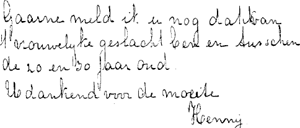 Gaarne meld ik u nog dat ik van
't vrouwelijke geslacht ben en tusschen
de 20 en 30 jaar oud.
U dankend voor de moeite
Henny